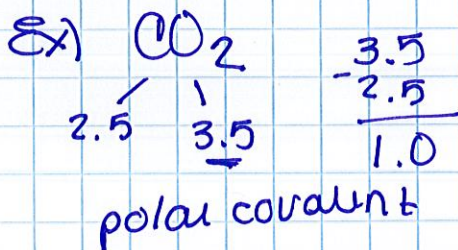 Ex) CO2
2.5 3.5
3.5
-2.5
1.0
polar covalent